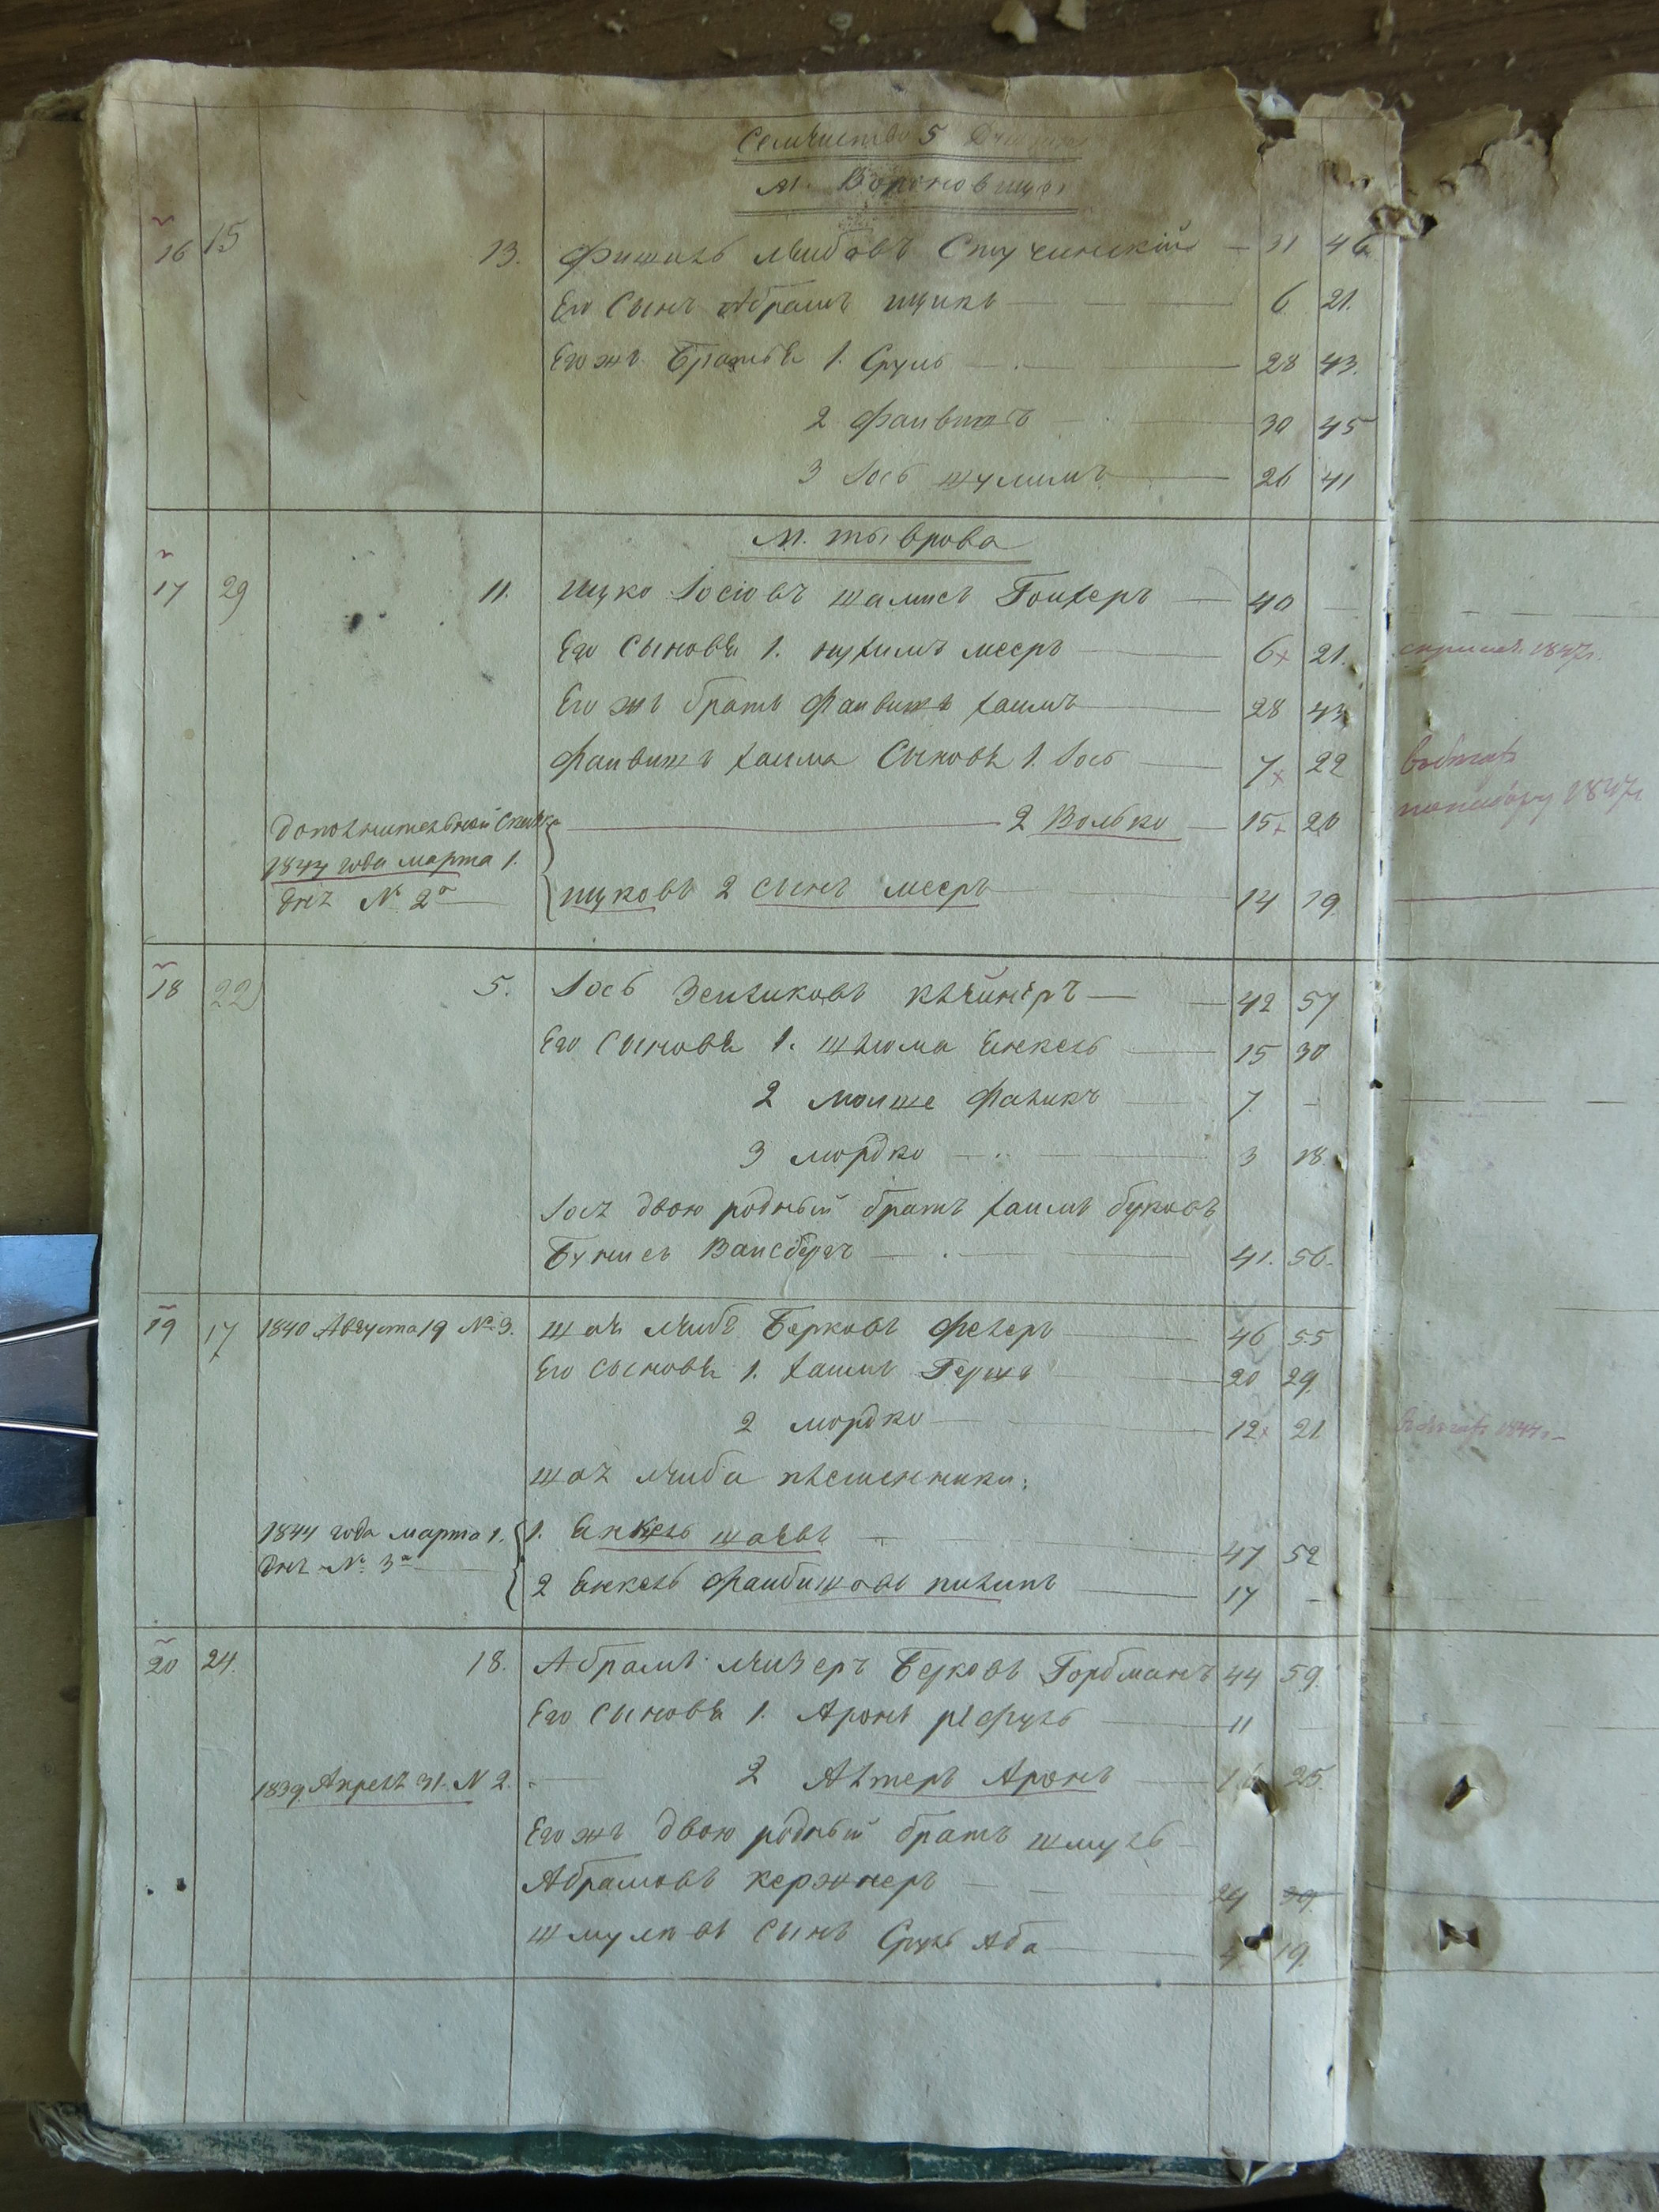 Семейство 5
М. Вороновицы
16 15 13. Фишель Лейбовъ Стучинский — 31 46
Его Сынъ Абрамъ Ицикъ — 6 21.
Его жъ Братья 1. Сруль — 28 43.
2 Файвишъ — 30 45
3 Іось Шулимъ — 26 41
М. Тыврова
17 29 11. Ицко Іосіовъ Шалисъ Гоихеръ — 40 —
Его Сыновья 1. Нухимъ Мееръ — 6 х 21. 1847г.
Его жъ братъ Файвишъ Хаимъ — 28 43
Файвишъ Хаима Сыновья 1. Іось — 7 х 22
1847г
дополнительной Сказки — 2 Волько — 15 х 20
1844 года марта 1.
№ 2а
Ицковъ 2 сынъ Мееръ — 14 19.
18 22 5. Іось Зейликовъ Клейнеръ — 42 57
Его Сыновья 1. Шлюма Янкель — 15 30
2 Мойше Фаликъ — 7. —
3 Мордко — 3 18.
Іося двоюродный братъ Хаимъ Буковъ
Бунисъ Вайсбергъ — 41. 56.
19 17 1840 Августа 19 №. 3. Шая Лейбъ Берковъ Фелеръ — 46 55
Его сыновья 1. Хаимъ Гершъ — 20 29.
2 Мордко — 12 х 21 1844г. —
Шая Лейба племенники:
1844 года марта 1. 1. Янкель Шаевъ — 47 52
№ 3а
2 Янкель Файбишовъ Пилипъ — 17 —
20 24. 18. Абрамъ Лейзеръ Берковъ Горбманъ 44 59.
Его Сыновья 1. Аронъ Рефуль — 11
1839 Апреля 31. N 2. — 2 Алтеръ Аронъ — 16 25.
Его жъ двоюродный братъ Шмуль —
Абрамовъ Кержнеръ — 24 39.
Шмулёвъ сынъ Сруль Аба — 4 19.